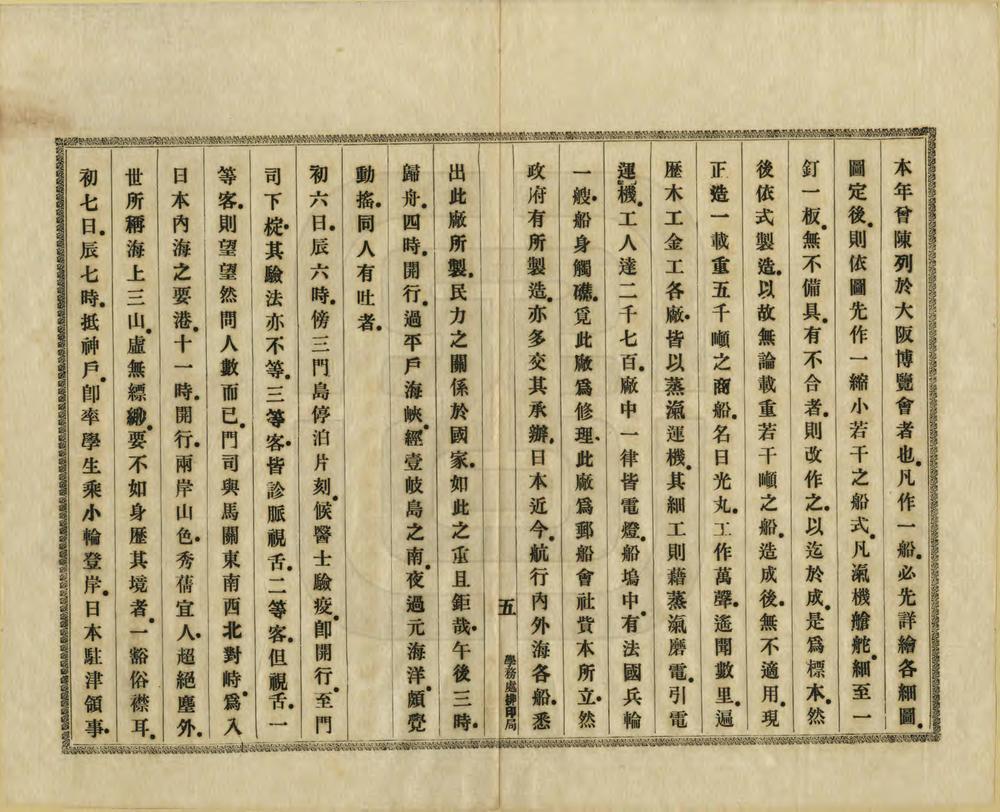 本年曾陳列於大阪博覽會者也。凡作一船。必先詳繪各細圖。
圖定後。則依圖先作一縮小若干之船式。凡滊機艙舵。細至一
釘一板。無不備具。有不合者。則改作之。以迄於成。是爲標本。然
後依式製造。以故無論載重若干噸之船。造成後。無不適用。現
正造一載重五千噸之商船。名日光丸。工作萬聲。遙聞數里。遍
歷木工金工各廠。皆以蒸滊運機。其細工則藉蒸滊磨電。引電
運機。工人達二千七百。廠中一律皆電燈。船塢中。有法國兵輪
一艘。船身觸礁。覓此廠爲修理。此廠爲郵船會社貲本所立。然
政府有所製造。亦多交其承辦。日本近今。航行內外海各船。悉
五
學務處排印局
出此廠所製。民力之關係於國家。如此之重且鉅哉。午後三時。
歸舟。四時。開行。過平戶海峽。經壹岐島之南。夜過元海洋。頗覺
動搖。同人有吐者。
初六日。辰六時。傍三門島停泊片刻。候醫士驗疫。卽開行。至門
司下椗。其驗法亦不等。三等客。皆診脈視舌。二等客。但視舌。一
等客。則望望然問人數而已。門司與馬關東南西北對峙。爲入
日本內海之要港。十一時。開行。兩岸山色。秀蒨宜人。超絕塵外。
世所稱海上三山。虛無縹緲。要不如身歷其境者。一豁俗襟耳。
初七日。辰七時。抵神戶。卽率學生乘小輪登岸。日本駐津領事。